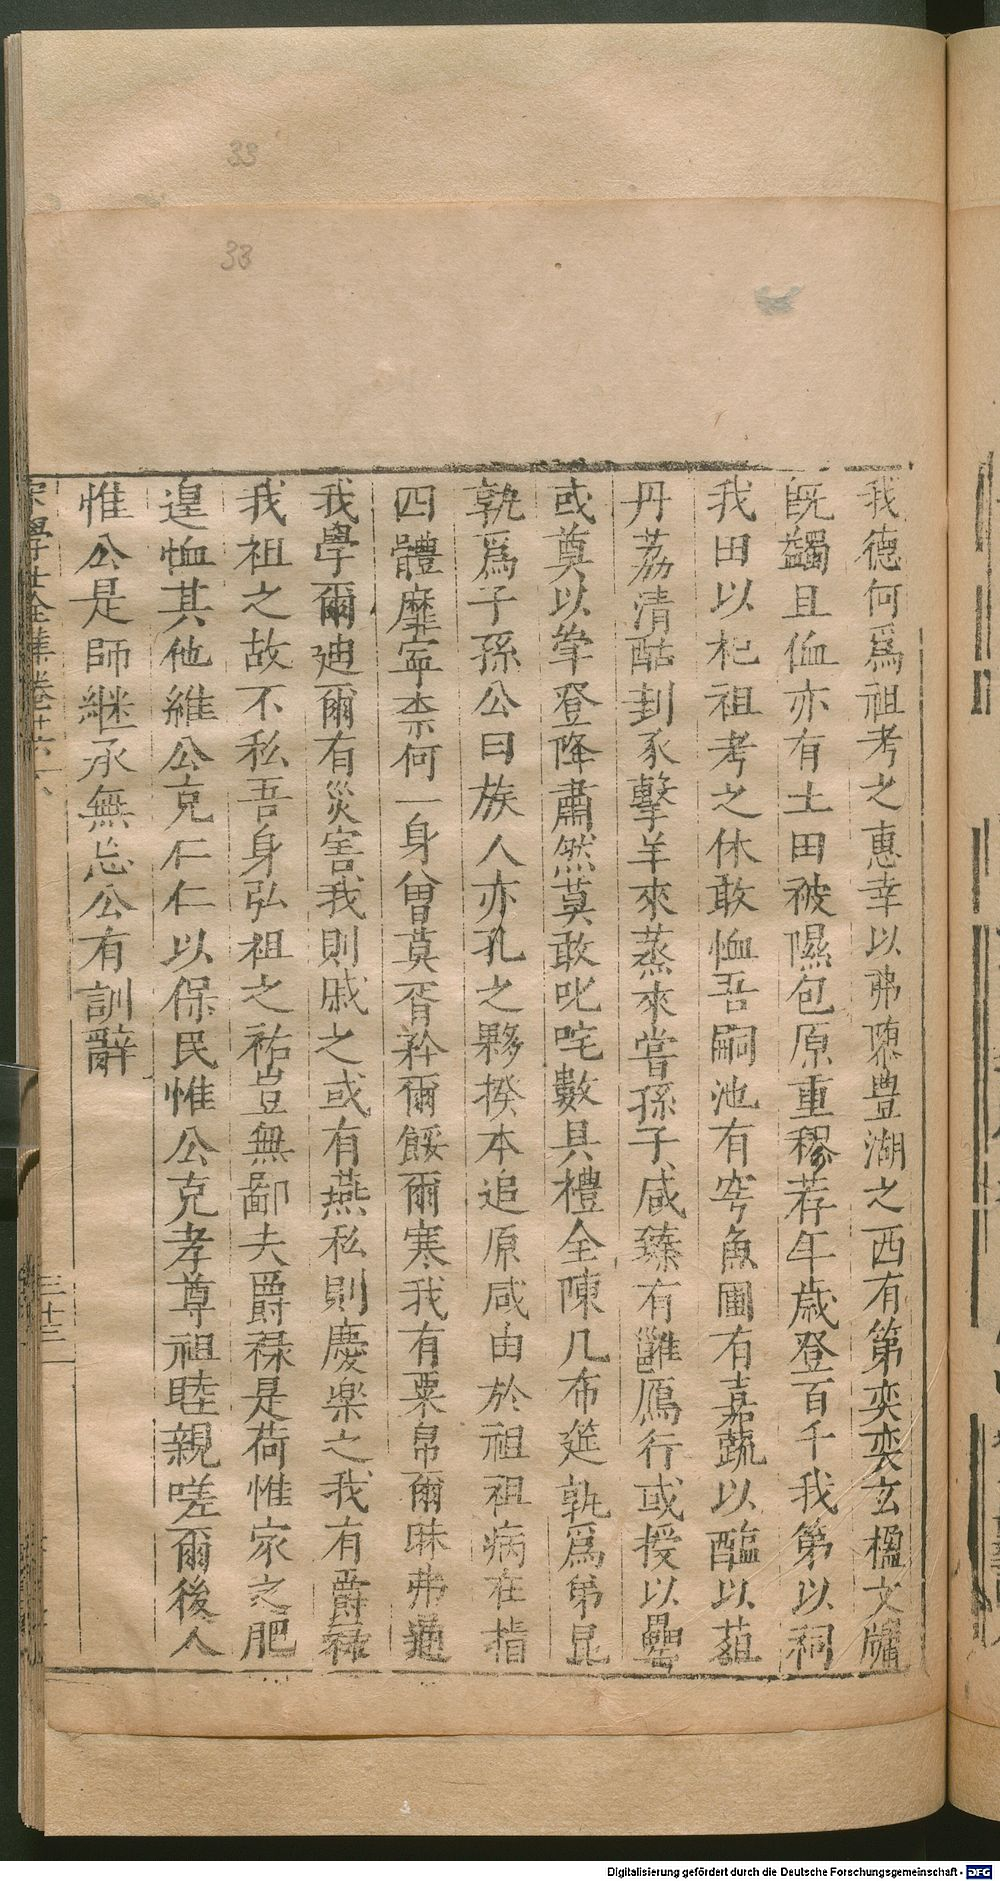 33
33
我德何爲祖考之惠幸以弗隳豊湖之西有第奕奕玄楹文牖
旣蠲且侐亦有土田被隰包原重穋荐午歲登百千我第以祠
我田以祀祖考之休敢恤吾嗣池有穹魚圃有嘉蔬以醢以葅
丹荔清酤刲豕擊羊來蒸來嘗孫子咸臻有雝鴈行或授以罍
或奠以筆登降肅然莫敢叱咤數具禮全陳几布筵孰爲弟昆
孰爲子孫公曰族人亦孔之夥揆本追原咸由於祖祖病在指
四體靡寧柰何一身曾莫胥矜爾餒爾寒我有粟帛爾昧弗通
我學爾廸爾有災害我則戚之或有燕私則慶樂之我有爵祿
我祖之故不私吾身弘祖之祐豈無鄙夫爵祿是荷惟家之肥
遑恤其他維公克仁仁以保民惟公克孝尊祖睦親嗟爾後人
惟公是師継承無忘公有訓辭
宋學士全集卷十六
三十三
Digitalisierung gefördert durch die Deutsche Forschungsgemeinschaft - DFG